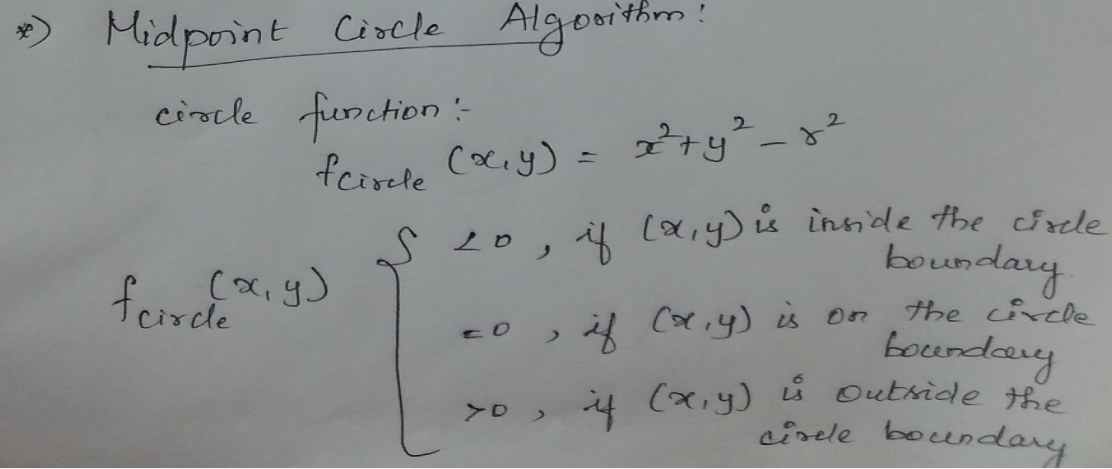 *) Midpoint Circle Algorithm:
circle function:-
fcircle (x,y) = x²+y²-r²
fcircle (x,y) { <0, if (x,y) is inside the circle
boundary.
=0, if (x,y) is on the circle
boundary
>0, if (x,y) is outside the
circle boundary